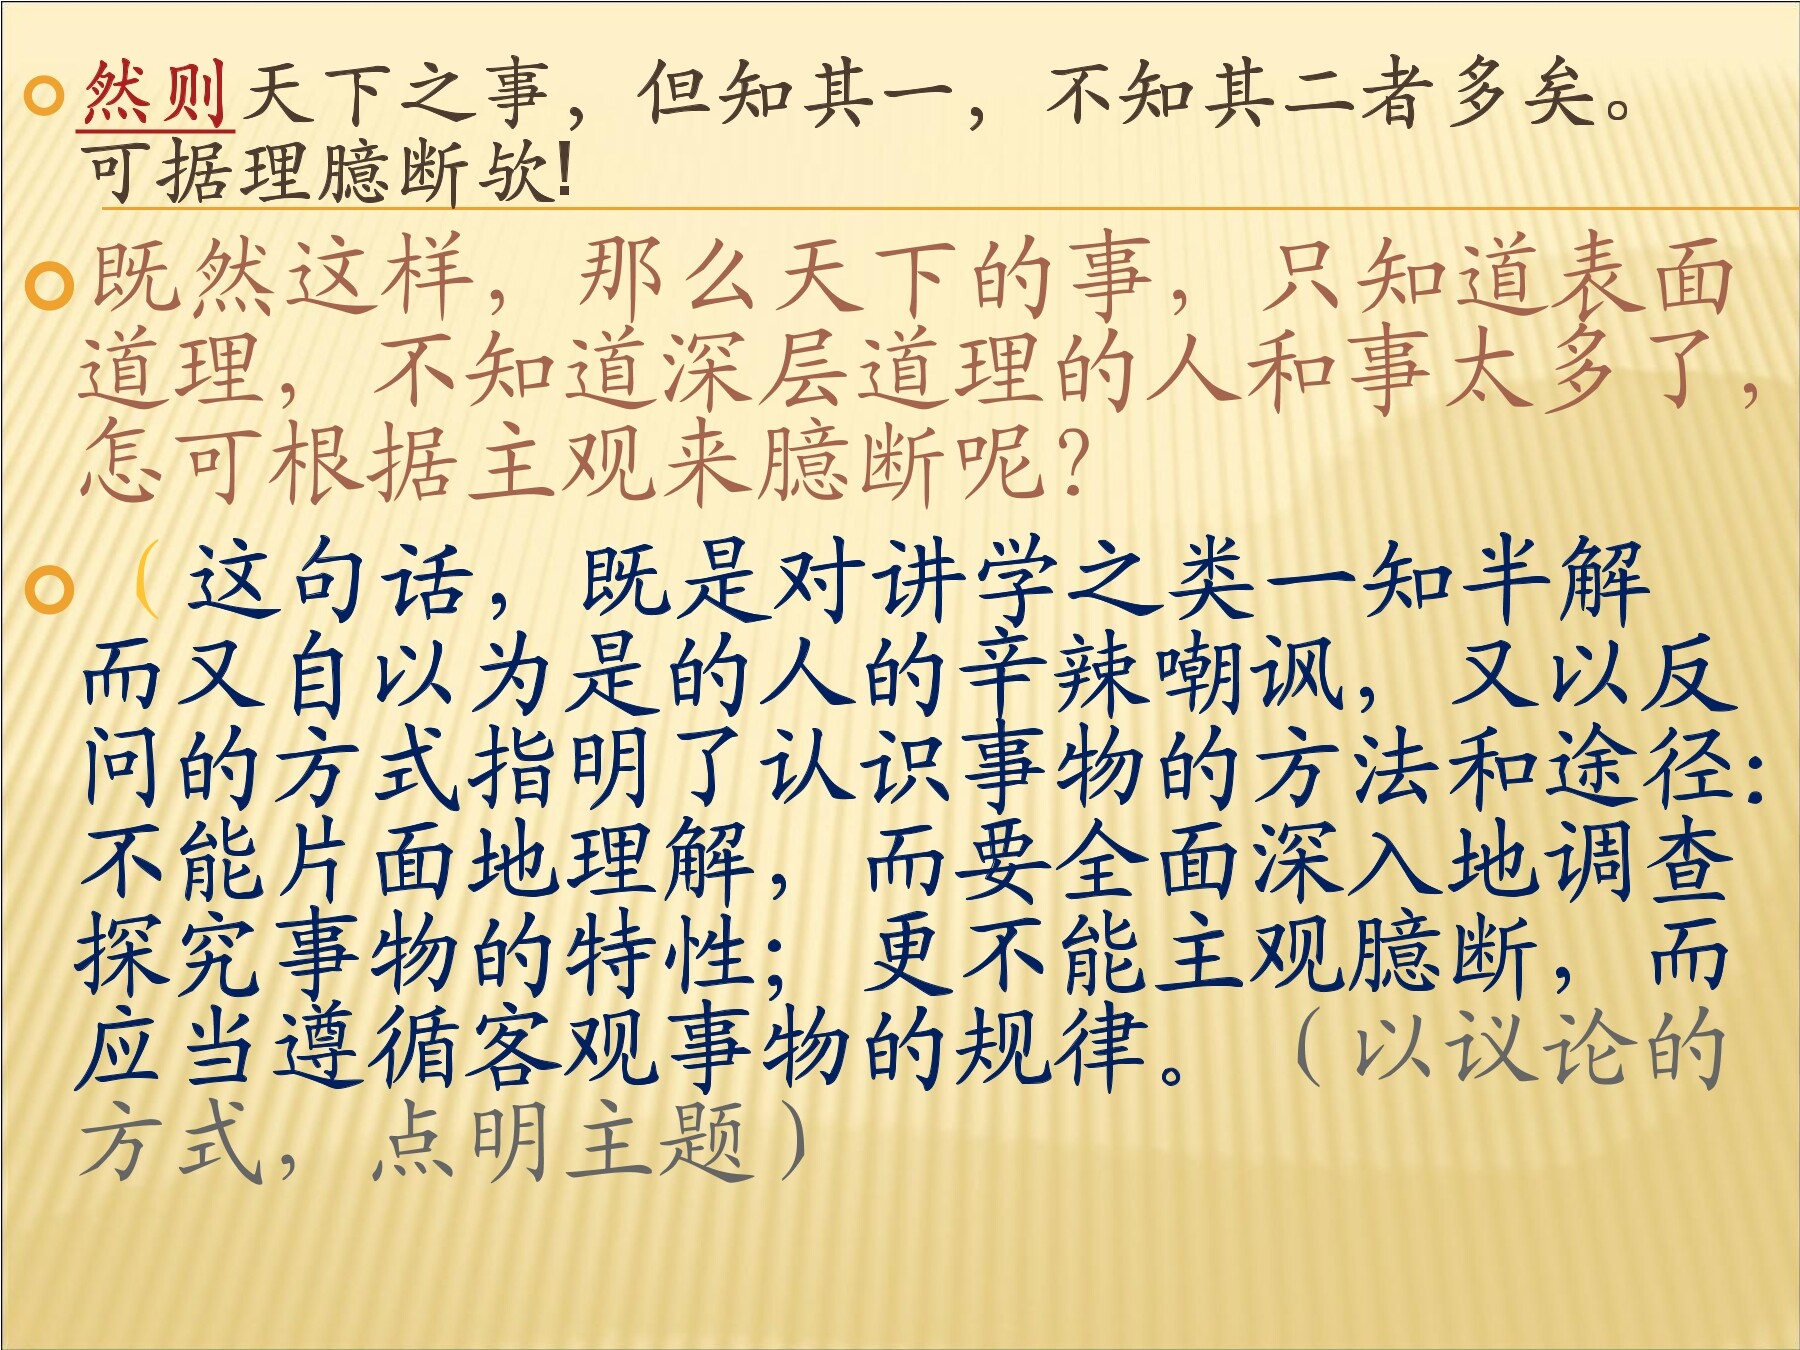 然则天下之事，但知其一，不知其二者多矣。
可据理臆断欤!
既然这样，那么天下的事，只知道表面
道理，不知道深层道理的人和事太多了，
怎可根据主观来臆断呢？
（这句话，既是对讲学之类一知半解
而又自以为是的人的辛辣嘲讽，又以反
问的方式指明了认识事物的方法和途径：
不能片面地理解，而要全面深入地调查
探究事物的特性；更不能主观臆断，而
应当遵循客观事物的规律。（以议论的
方式，点明主题）